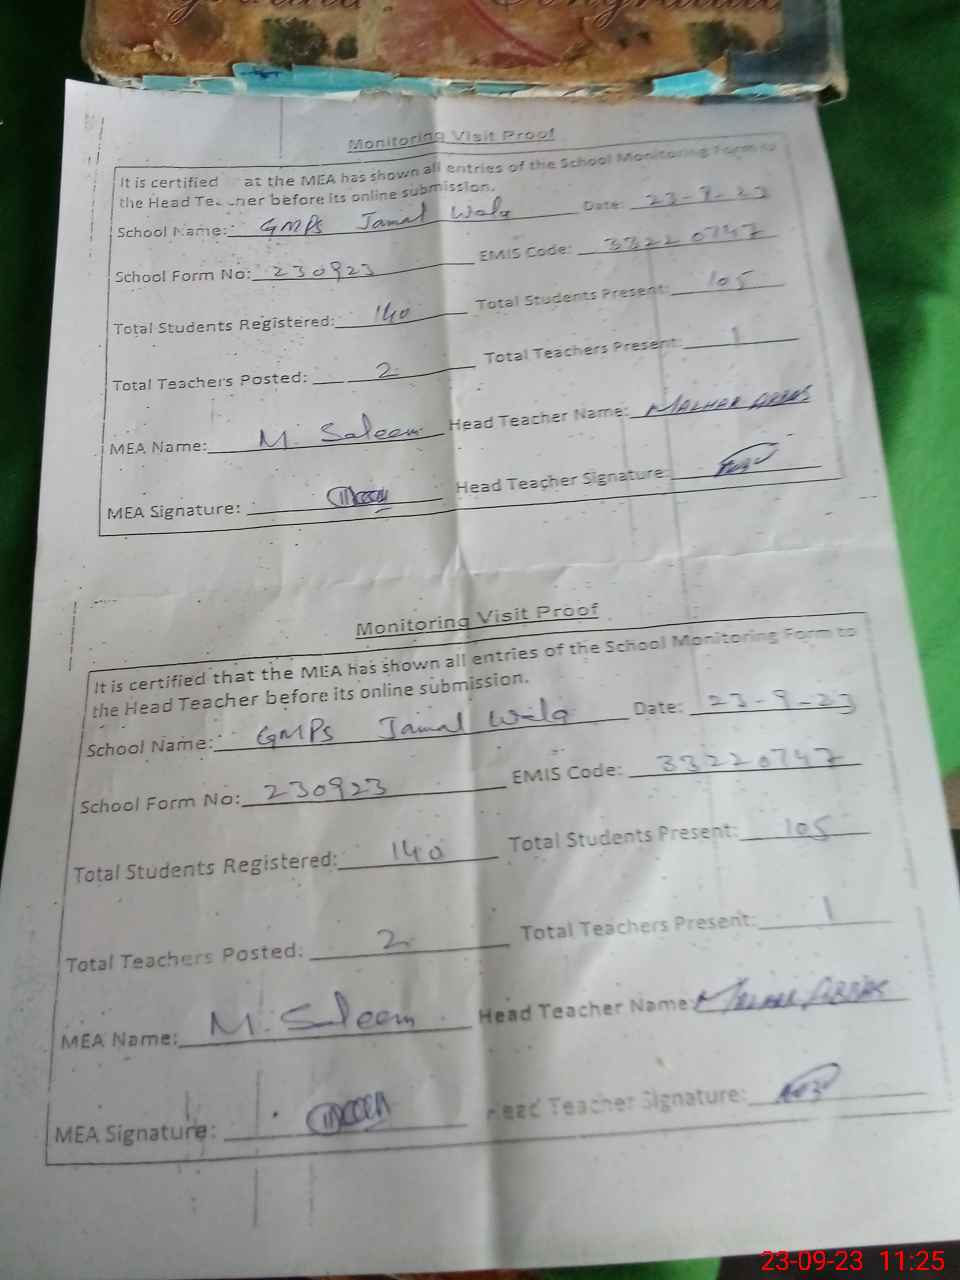 Congratul
Monitoring Visit Proof
It is certified at the MEA has shown all entries of the School Monitoring Form to
the Head Teacher before its online submission.
School Name: GMPS Jamal Wala Date: 23-9-23
School Form No: 230923 EMIS Code: 33220747
Total Students Registered: 140 Total Students Present: 105
Total Teachers Posted: 2 Total Teachers Present: 1
MEA Name: M. Saleem Head Teacher Name:
MEA Signature: Head Teacher Signature:
Monitoring Visit Proof
It is certified that the MEA has shown all entries of the School Monitoring Form to
the Head Teacher before its online submission.
School Name: GMPS Jamal Wala Date: 23-9-23
School Form No: 230923 EMIS Code: 33220747
Total Students Registered: 140 Total Students Present: 105
Total Teachers Posted: 2 Total Teachers Present: 1
MEA Name: M. Saleem Head Teacher Name:
MEA Signature: Head Teacher Signature:
23-09-23 11:25